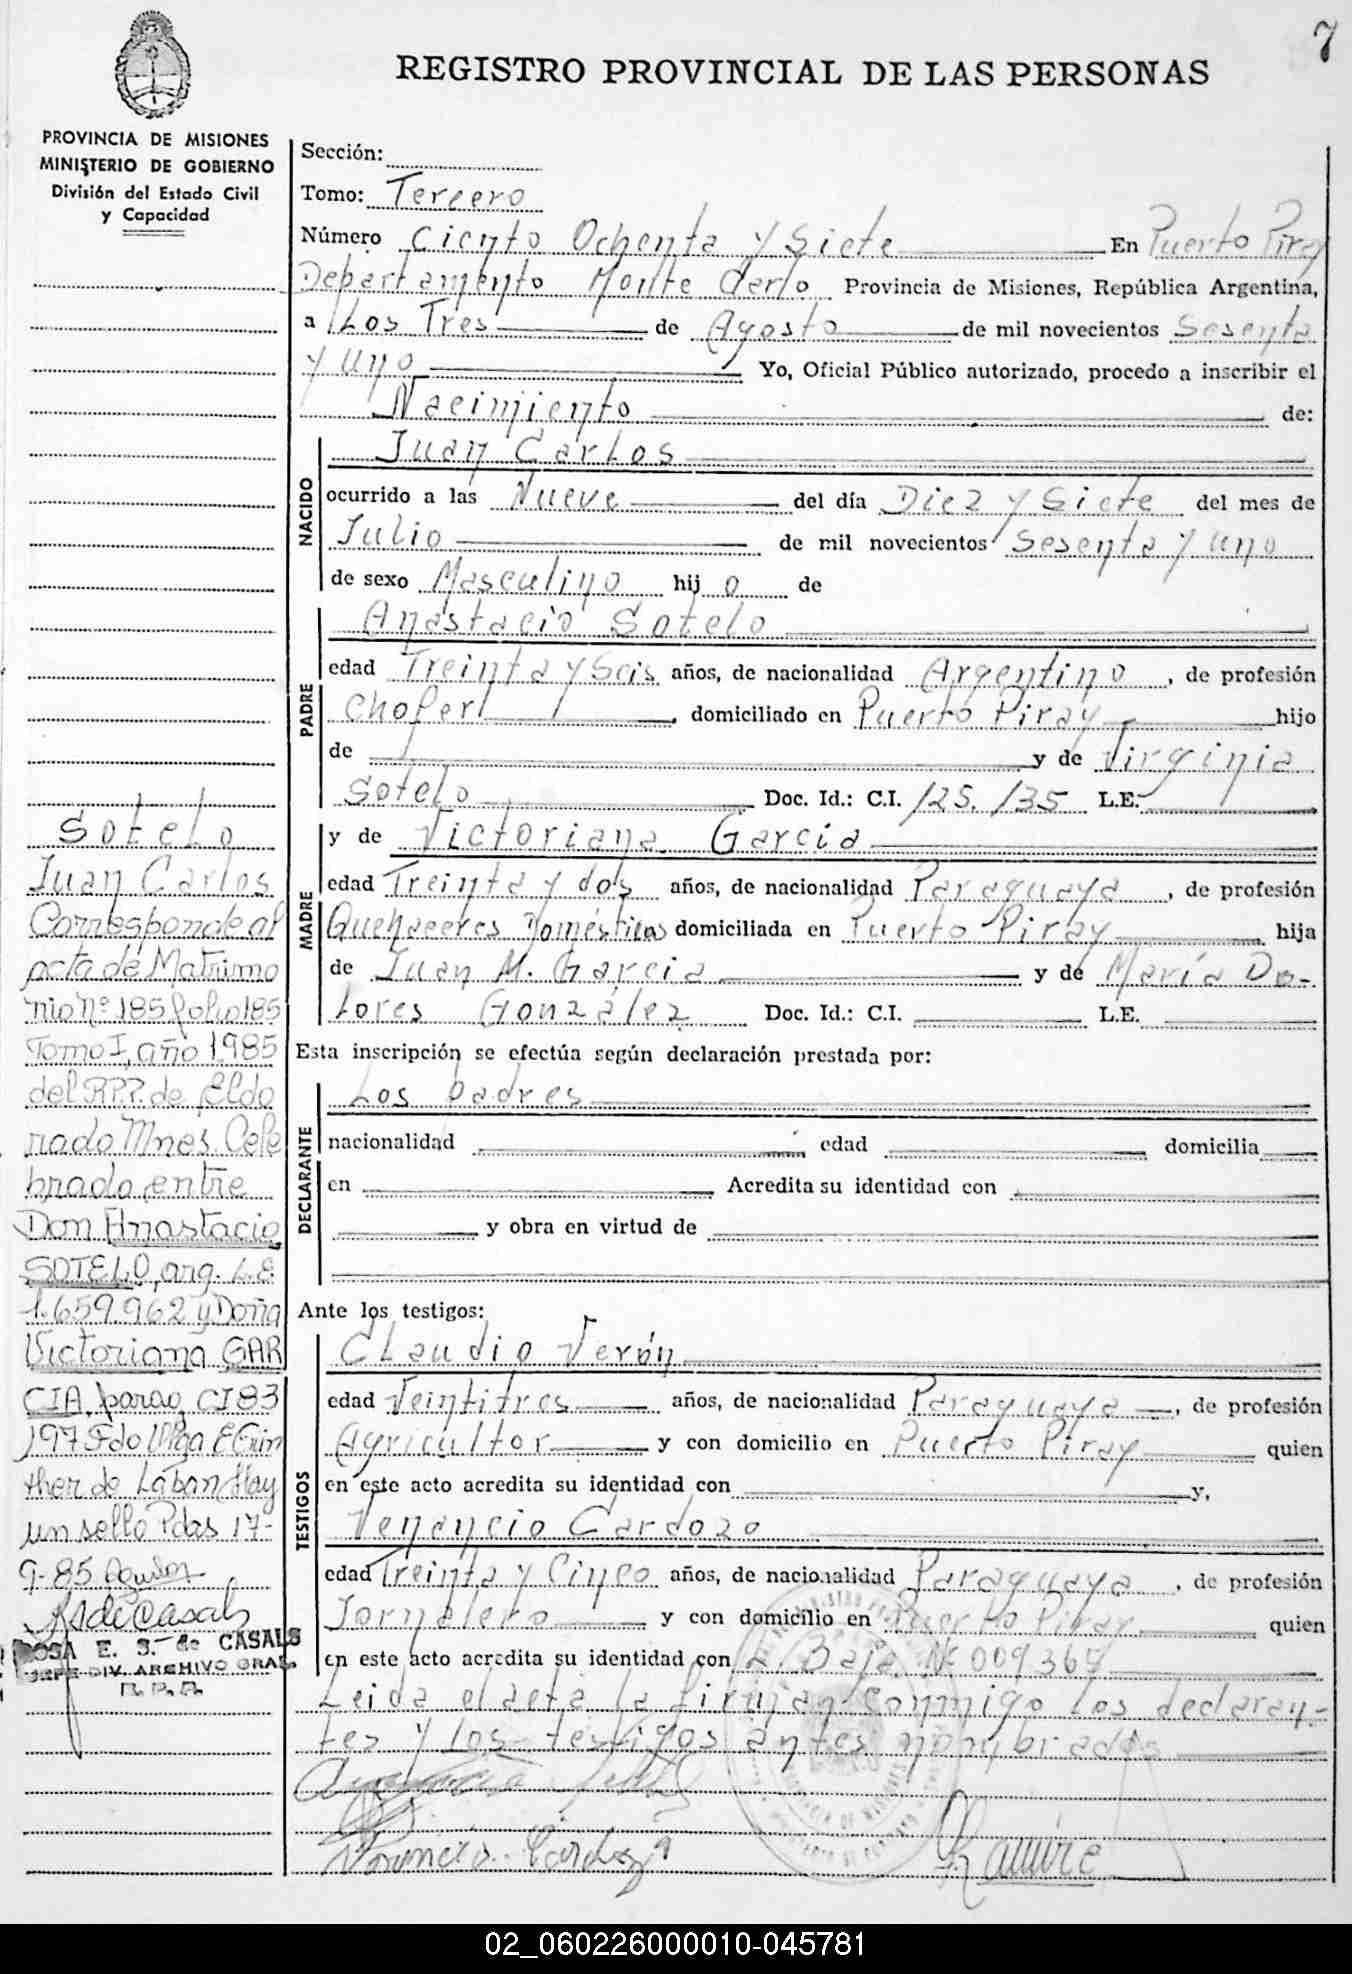 7
REGISTRO PROVINCIAL DE LAS PERSONAS
PROVINCIA DE MISIONES
MINISTERIO DE GOBIERNO
División del Estado Civil
y Capacidad
Sección:
Tomo: Tercero
Número Ciento Ochenta y Siete En Puerto Piray
Departamento Monte Carlo Provincia de Misiones, República Argentina,
a Los Tres de Agosto de mil novecientos Sesenta
y uno Yo, Oficial Público autorizado, procedo a inscribir el
Nacimiento de:
NACIDO
Juan Carlos
ocurrido a las Nueve del día Diez y Siete del mes de
Julio de mil novecientos Sesenta y uno
de sexo Masculino hij o de
PADRE
Anastacio Sotelo
edad Treinta y Seis años, de nacionalidad Argentino, de profesión
Chofer, domiciliado en Puerto Piray hijo
de y de Virginia
Sotelo Doc. Id.: C.I. 125.135 L.E.
MADRE
y de Victoriana García
edad Treinta y dos años, de nacionalidad Paraguaya, de profesión
Quehaceres Domésticos domiciliada en Puerto Piray hija
de Juan M. Garcia y de María Do-
lores González Doc. Id.: C.I. L.E.
Esta inscripción se efectúa según declaración prestada por:
DECLARANTE
Los padres
nacionalidad edad domicilia
en Acredita su identidad con
y obra en virtud de
Ante los testigos:
TESTIGOS
Claudio Verón
edad Veintitres años, de nacionalidad Paraguaya, de profesión
Agricultor y con domicilio en Puerto Piray quien
en este acto acredita su identidad con y,
Venancio Cardozo
edad Treinta y Cinco años, de nacionalidad Paraguaya, de profesión
Jornalero y con domicilio en Puerto Piray quien
en este acto acredita su identidad con L. Baja Nº 009364
Leida el acta la firman conmigo los declaran-
tes y los testigos antes nombrados
Cardozo
Ramire
Sotelo
Juan Carlos
Corresponde al
acta de Matrimo
nio Nº 185 folio 185
Tomo I, año 1985
del R.P.P. de Eldo
rado Mnes. Cele
brado entre
Don Anastacio
SOTELO, arg. L.E.
1.659.962 y Doña
Victoriana GAR
CIA, parag CI 83
197 Fdo Olga E Grin
ther de Laban Hay
un sello Pdas 17-
9-85
ROSA E. S. de CASALS
JEFE DIV. ARCHIVO GRAL.
R. P. P.
02_060226000010-045781